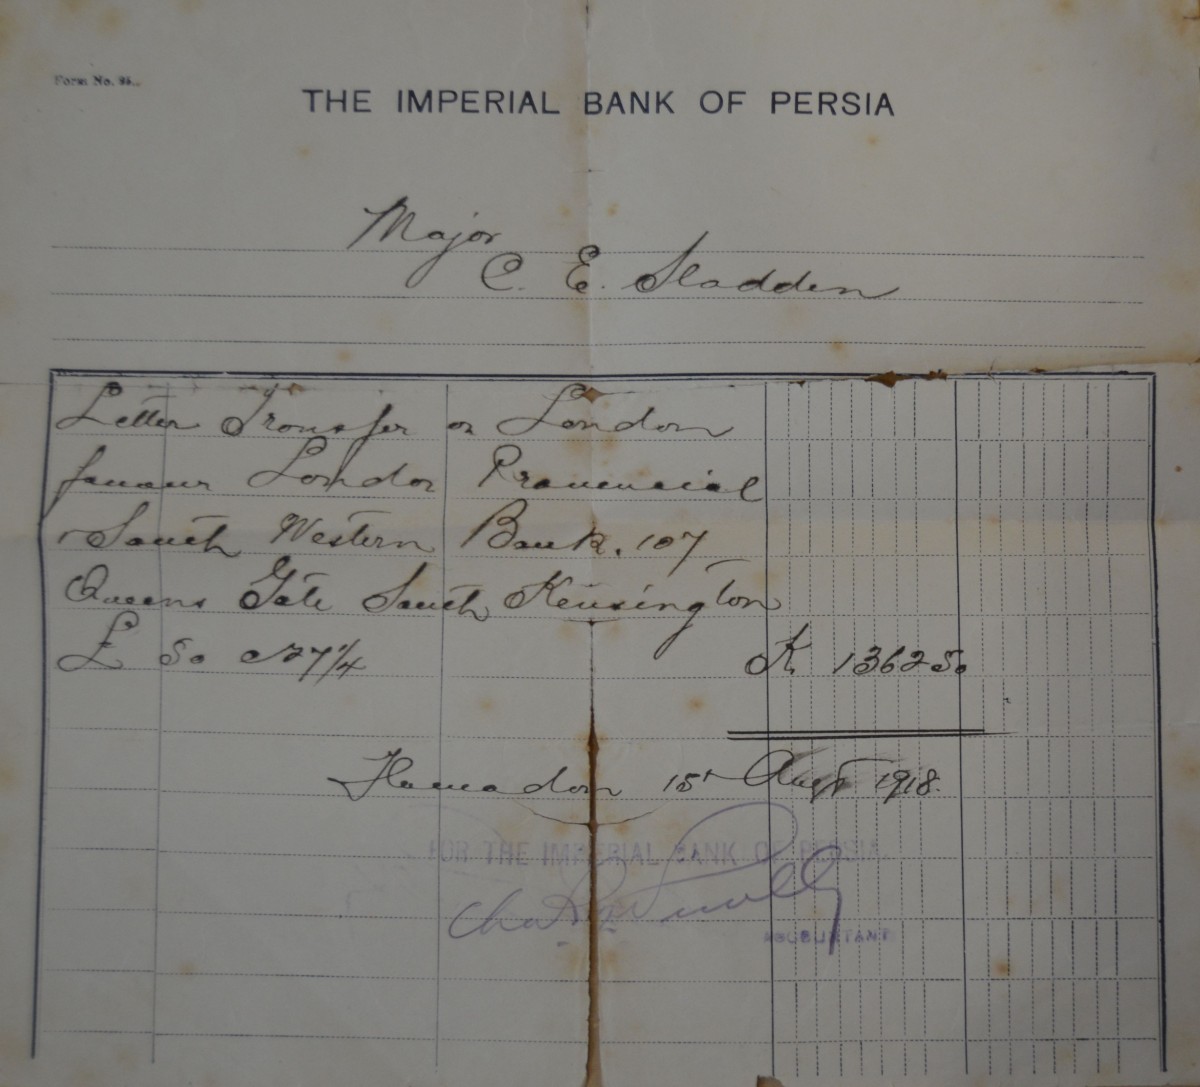 Form No.
THE IMPERIAL BANK OF PERSIA
Major
C. E. Sladden
Letter Transfer on London
favour London Provincial
South Western Bank. 107
Queens Gate South Kensington
£ 50 @ 27 1/4 K 1362 50
Hamadan 15t Augt 1918.
FOR THE IMPERIAL BANK OF PERSIA.
ACCOUNTANT